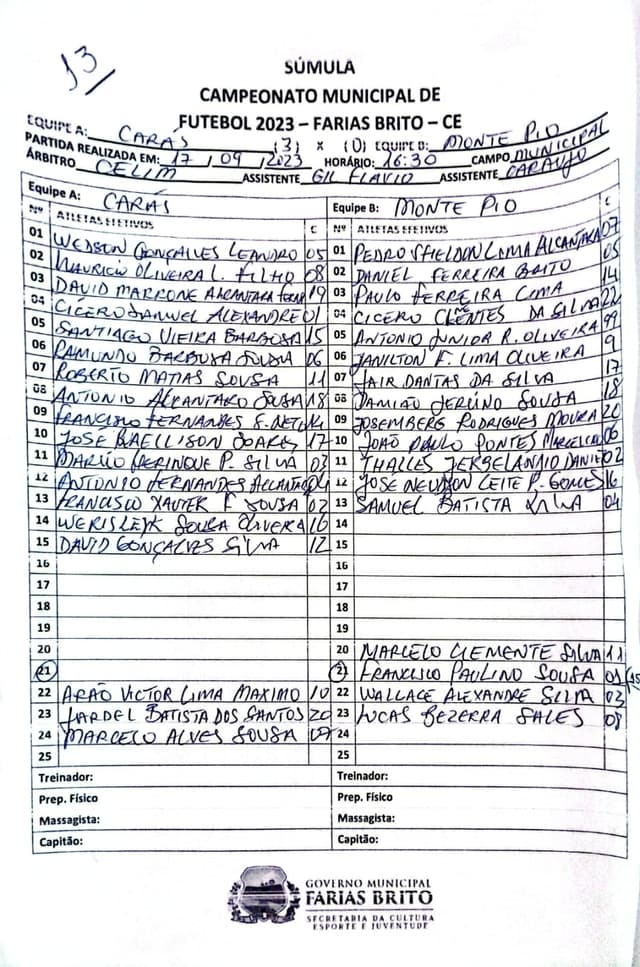 13
SÚMULA
CAMPEONATO MUNICIPAL DE
FUTEBOL 2023 – FARIAS BRITO – CE
EQUIPE A: CARÁS (3) X (0) EQUIPE B: MONTE PIO
PARTIDA REALIZADA EM: 17 / 09 / 2023 HORÁRIO: 16:30 CAMPO MUNICIPAL
ÁRBITRO CELIM ASSISTENTE GIL FLAVIO ASSISTENTE CARAUJO
Equipe A: CARÁS Equipe B: MONTE PIO
Nº ATLETAS EFETIVOS C Nº ATLETAS EFETIVOS C
01 WEDSON GONÇALVES LEANDRO 05 01 PEDRO SHELDON LIMA ALCANTARA 07
02 MAURICIO OLIVEIRA L. FILHO 08 02 DANIEL FERREIRA BRITO 05
03 DAVID MARRONE ALCANTARA 19 03 PAULO FERREIRA LIMA 14
04 CÍCERO SAMUEL ALEXANDRE 01 04 CICERO CLENTES DA SILVA 22
05 SANTIAGO VIEIRA BARBOSA 15 05 ANTONIO JUNIOR R. OLIVEIRA 99
06 RAIMUNDO BARBOSA SOUSA 06 06 JANILTON F. LIMA OLIVEIRA 9
07 ROBERTO MATIAS SOUSA 11 07 JAIR DANTAS DA SILVA 17
08 ANTONIO ALCANTARO SOUSA 18 08 DAMIÃO SOUSA 18
09 FRANCISCO FERNANDES S. NETO 14 09 JOSEMBERG RODRIGUES MOURA 20
10 JOSE RAELLISON SOARES 17 10 JOÃO PAULO PONTES 06
11 P. SILVA 03 11 THALLES 02
12 ANTONIO FERNANDES ALCANTARA 04 12 JOSE NEUDSON LEITE P. GOMES 16
13 FRANCISCO XAVIER F SOUSA 02 13 SAMUEL BATISTA SILVA 04
14 WERISLEYK SOUSA OLIVEIRA 16 14
15 DAVID GONÇALVES SILVA 12 15
16 16
17 17
18 18
19 19
20 20 MARCELO CLEMENTE SILVA 11
21 21 FRANCISCO PAULINO SOUSA 15
22 ARÃO VICTOR LIMA MAXIMO 10 22 WALLACE ALEXANDRE SILVA 03
23 JARDEL BATISTA DOS SANTOS 20 23 LUCAS BEZERRA SALES 08
24 MARCELO ALVES SOUSA 24
25 25
Treinador: Treinador:
Prep. Físico Prep. Físico
Massagista: Massagista:
Capitão: Capitão:
GOVERNO MUNICIPAL
FARIAS BRITO
SECRETARIA DA CULTURA
ESPORTE E JUVENTUDE